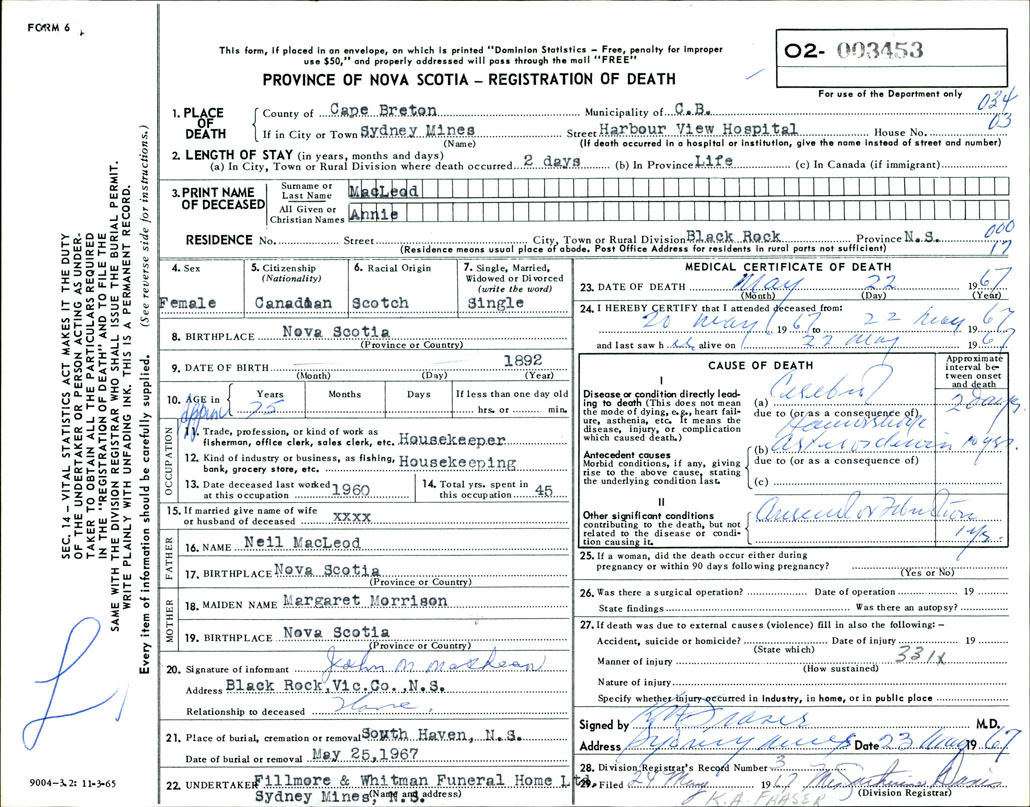 FORM 6
This form, if placed in an envelope, on which is printed "Dominion Statistics – Free, penalty for improper
use $50," and properly addressed will pass through the mail "FREE"
PROVINCE OF NOVA SCOTIA – REGISTRATION OF DEATH
02- 003453
For use of the Department only
034
03
1. PLACE OF DEATH
County of Cape Breton Municipality of C.B.
If in City or Town Sydney Mines Street Harbour View Hospital House No.
(Name) (If death occurred in a hospital or institution, give the name instead of street and number)
2. LENGTH OF STAY (in years, months and days)
(a) In City, Town or Rural Division where death occurred 2 days (b) In Province Life (c) In Canada (if immigrant)
3. PRINT NAME OF DECEASED
Surname or Last Name MacLeod
All Given or Christian Names Annie
RESIDENCE No. Street City, Town or Rural Division Black Rock Province N.S.
(Residence means usual place of abode. Post Office Address for residents in rural parts not sufficient)
000
17
4. Sex
Female
5. Citizenship
(Nationality)
Canadian
6. Racial Origin
Scotch
7. Single, Married,
Widowed or Divorced
(write the word)
Single
8. BIRTHPLACE Nova Scotia
(Province or Country)
9. DATE OF BIRTH 1892
(Month) (Day) (Year)
10. AGE in Years Months Days If less than one day old
75 hrs. or min.
OCCUPATION
11. Trade, profession, or kind of work as
fisherman, office clerk, sales clerk, etc. Housekeeper
12. Kind of industry or business, as fishing,
bank, grocery store, etc. Housekeeping
13. Date deceased last worked
at this occupation 1960
14. Total yrs. spent in
this occupation 45
15. If married give name of wife
or husband of deceased xxxx
FATHER
16. NAME Neil MacLeod
17. BIRTHPLACE Nova Scotia
(Province or Country)
MOTHER
18. MAIDEN NAME Margaret Morrison
19. BIRTHPLACE Nova Scotia
(Province or Country)
20. Signature of informant John M
Address Black Rock, Vic.Co., N.S.
Relationship to deceased
21. Place of burial, cremation or removal South Haven, N.S.
Date of burial or removal May 25, 1967
22. UNDERTAKER Fillmore & Whitman Funeral Home Ltd.
(Name and address)
Sydney Mines, N.S.
MEDICAL CERTIFICATE OF DEATH
23. DATE OF DEATH May 22 1967
(Month) (Day) (Year)
24. I HEREBY CERTIFY that I attended deceased from:
20 May 1967 to 22 May 1967
and last saw h alive on 22 May 1967
CAUSE OF DEATH
Approximate
interval be-
tween onset
and death
I
Disease or condition directly lead-
ing to death (This does not mean
the mode of dying, e.g., heart fail-
ure, asthenia, etc. It means the
disease, injury, or complication
which caused death.)
(a) Cerebral 2 days
due to (or as a consequence of)
Haemorrhage
Antecedent causes
Morbid conditions, if any, giving
rise to the above cause, stating
the underlying condition last.
(b) 10 yrs.
due to (or as a consequence of)
(c)
II
Other significant conditions
contributing to the death, but not
related to the disease or condi-
tion causing it.
Auricular Fibrillation
1 yr.
25. If a woman, did the death occur either during
pregnancy or within 90 days following pregnancy?
(Yes or No)
26. Was there a surgical operation? Date of operation 19
State findings Was there an autopsy?
27. If death was due to external causes (violence) fill in also the following: –
Accident, suicide or homicide? Date of injury 19
(State which)
331x
Manner of injury
(How sustained)
Nature of injury
Specify whether injury occurred in industry, in home, or in public place
Signed by K A Fraser M.D.
Address Sydney Mines Date 23 May 1967
28. Division Registrar's Record Number 3
29. Filed 24 May 1967 Davis
(Division Registrar)
K.A. FRASER
9004–3.2: 11-3-65
SEC. 14 – VITAL STATISTICS ACT MAKES IT THE DUTY
OF THE UNDERTAKER OR PERSON ACTING AS UNDER-
TAKER TO OBTAIN ALL THE PARTICULARS REQUIRED
IN THE "REGISTRATION OF DEATH" AND TO FILE THE
SAME WITH THE DIVISION REGISTRAR WHO SHALL ISSUE THE BURIAL PERMIT.
WRITE PLAINLY WITH UNFADING INK. THIS IS A PERMANENT RECORD.
Every item of information should be carefully supplied. (See reverse side for instructions.)